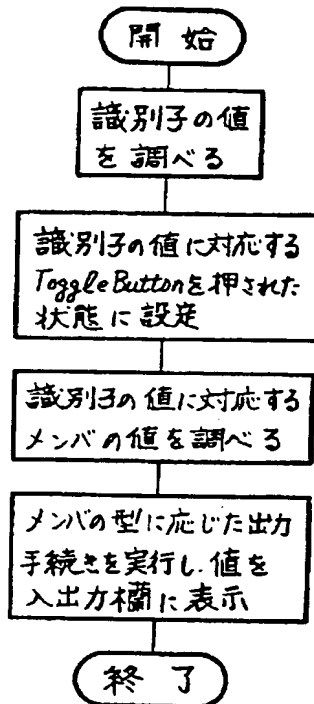 開始
識別子の値
を調べる
識別子の値に対応する
ToggleButtonを押された
状態に設定
識別子の値に対応する
メンバの値を調べる
メンバの型に応じた出力
手続きを実行し、値を
入出力欄に表示
終了